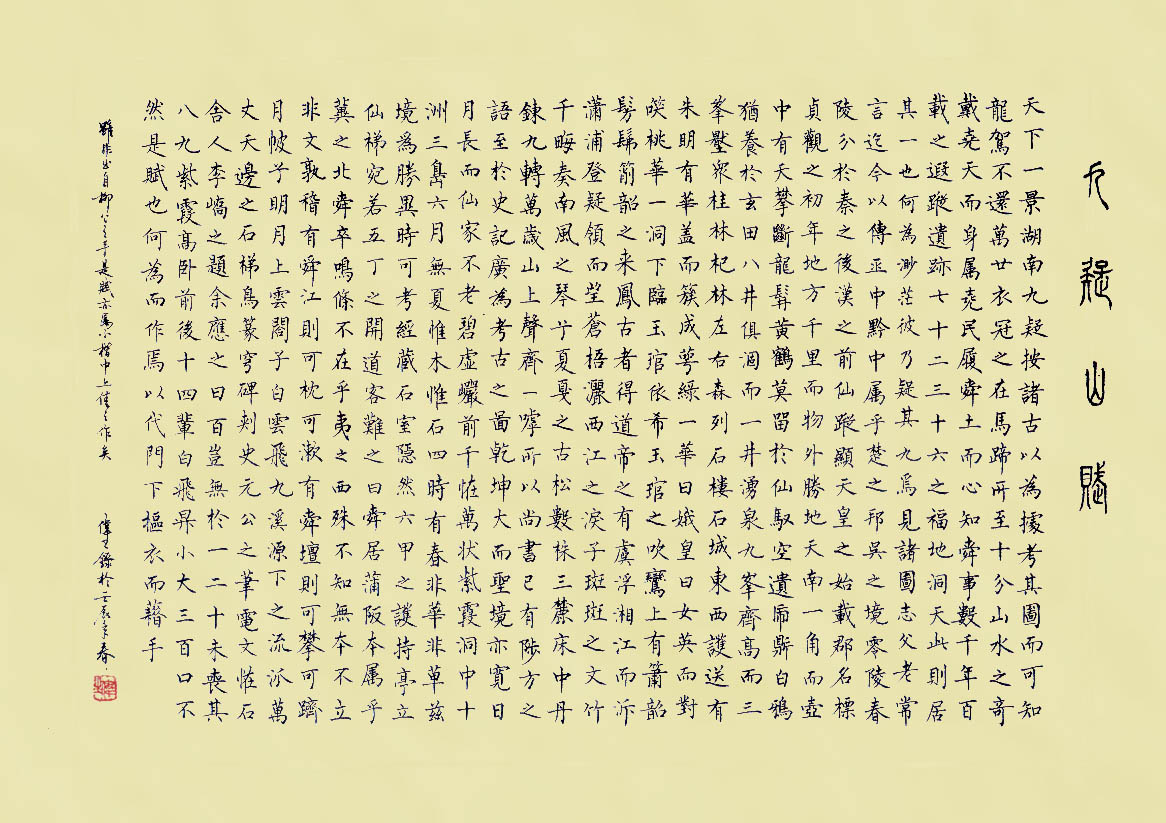 九疑山賦
天下一景湖南九疑按諸古以為據考其圖而可知
龍駕不還萬廿衣冠之在馬蹄所至十分山水之奇
戴堯天而身属堯民履舜土而心知舜事數千年百
載之遐蹤遺跡七十二三十六之福地洞天此則居
其一也何為渺茫彼乃疑其九焉見諸圖志父老常
言迄今以傳亚中黔中属乎楚之邦吳之境零陵春
陵分於秦之後漢之前仙蹤顯天皇之始載郡名標
貞觀之初年地方千里而物外勝地天南一角而壺
中有天攀斷龍髯黃鶴莫留於仙馭空遺鼎白鴉
猶養於玄田八井俱涸而一井湧泉九峯齊髙而三
峯壑衆桂林杞林左右森列石樓石城東西護送有
朱明有華盖而簇成萼綠一華曰娥皇曰女英而對
啖桃華一洞下臨玉琯依希玉琯之吹鸞上有簫韶
髣髴箾韶之来鳳古者得道帝之有虞浮湘江而泝
瀟浦登疑領而望蒼梧灑西江之淚子斑斑之文竹
千晦奏南風之琴兮夏戛之古松數株三麓床中丹
鍊九轉萬歲山上聲齊一嘑所以尚書已有陟方之
語至於史記廣為考古之啚乾坤大而聖境亦寬日
月長而仙家不老碧虛巖前千恠萬状紫霞洞中十
洲三島六月無夏惟木惟石四時有春非華非草兹
境為勝異時可考經藏石室隱然六甲之護持亭立
仙梯宛若五丁之開道客難之曰舜居蒲阪本属乎
冀之北舜卒鳴條不在乎夷之西殊不知無本不立
非文孰稽有舜江則可枕可漱有舜壇則可攀可躋
月帔子明月上雲閣子白雲飛九溪源下之流派萬
丈天邊之石梯鳥篆穹碑刺史元公之筆電文恠石
舍人李嶠之題余應之曰百豈無於一二十未喪其
八九紫霞髙卧前後十四輩白飛昇小大三百口不
然是賦也何為而作焉以代門下摳衣而藉手
雖非出自柳公之手是賦亦為小楷中上佳之作矣
偉文錄於壬辰季春